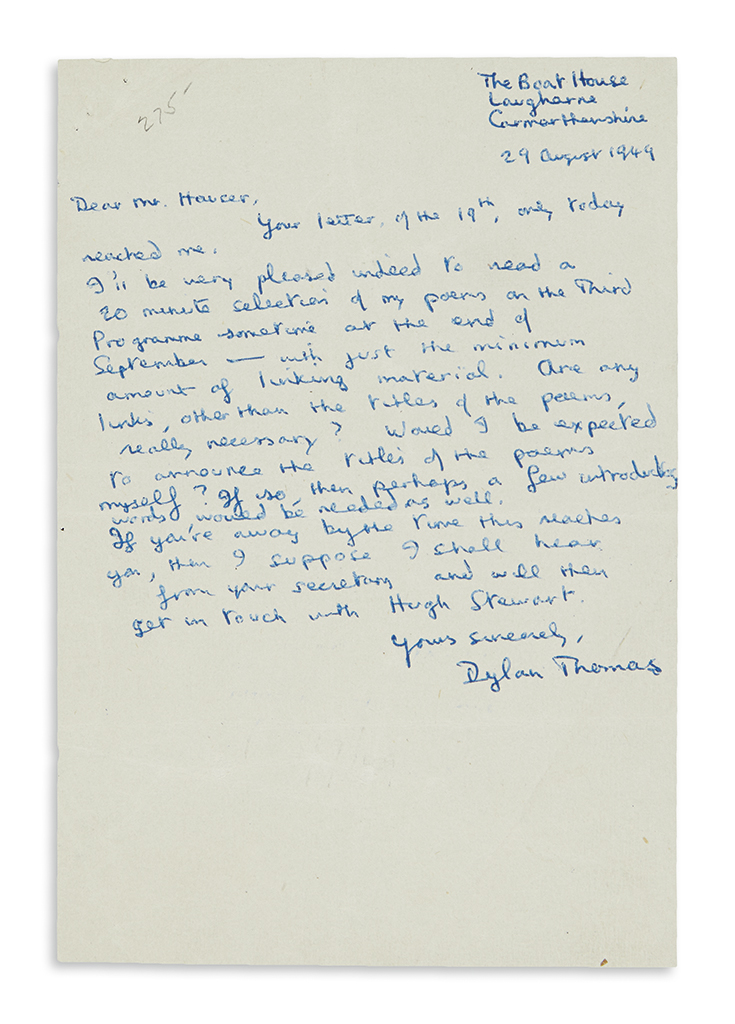 275
The Boat House
Laugharne
Carmarthenshire
29 August 1949
Dear Mr. Hauser,
Your letter, of the 19th, only today
reached me.
I'll be very pleased indeed to read a
20 minute selection of my poems on the Third
Programme sometime at the end of
September — with just the minimum
amount of linking material. Are any
links, other than the titles of the poems,
really necessary? Would I be expected
to announce the titles of the poems
myself? If so, then perhaps a few introductory
words would be needed as well.
If you're away by the time this reaches
you, then I suppose I shall hear
from your secretary and will then
get in touch with Hugh Stewart.
Yours sincerely,
Dylan Thomas